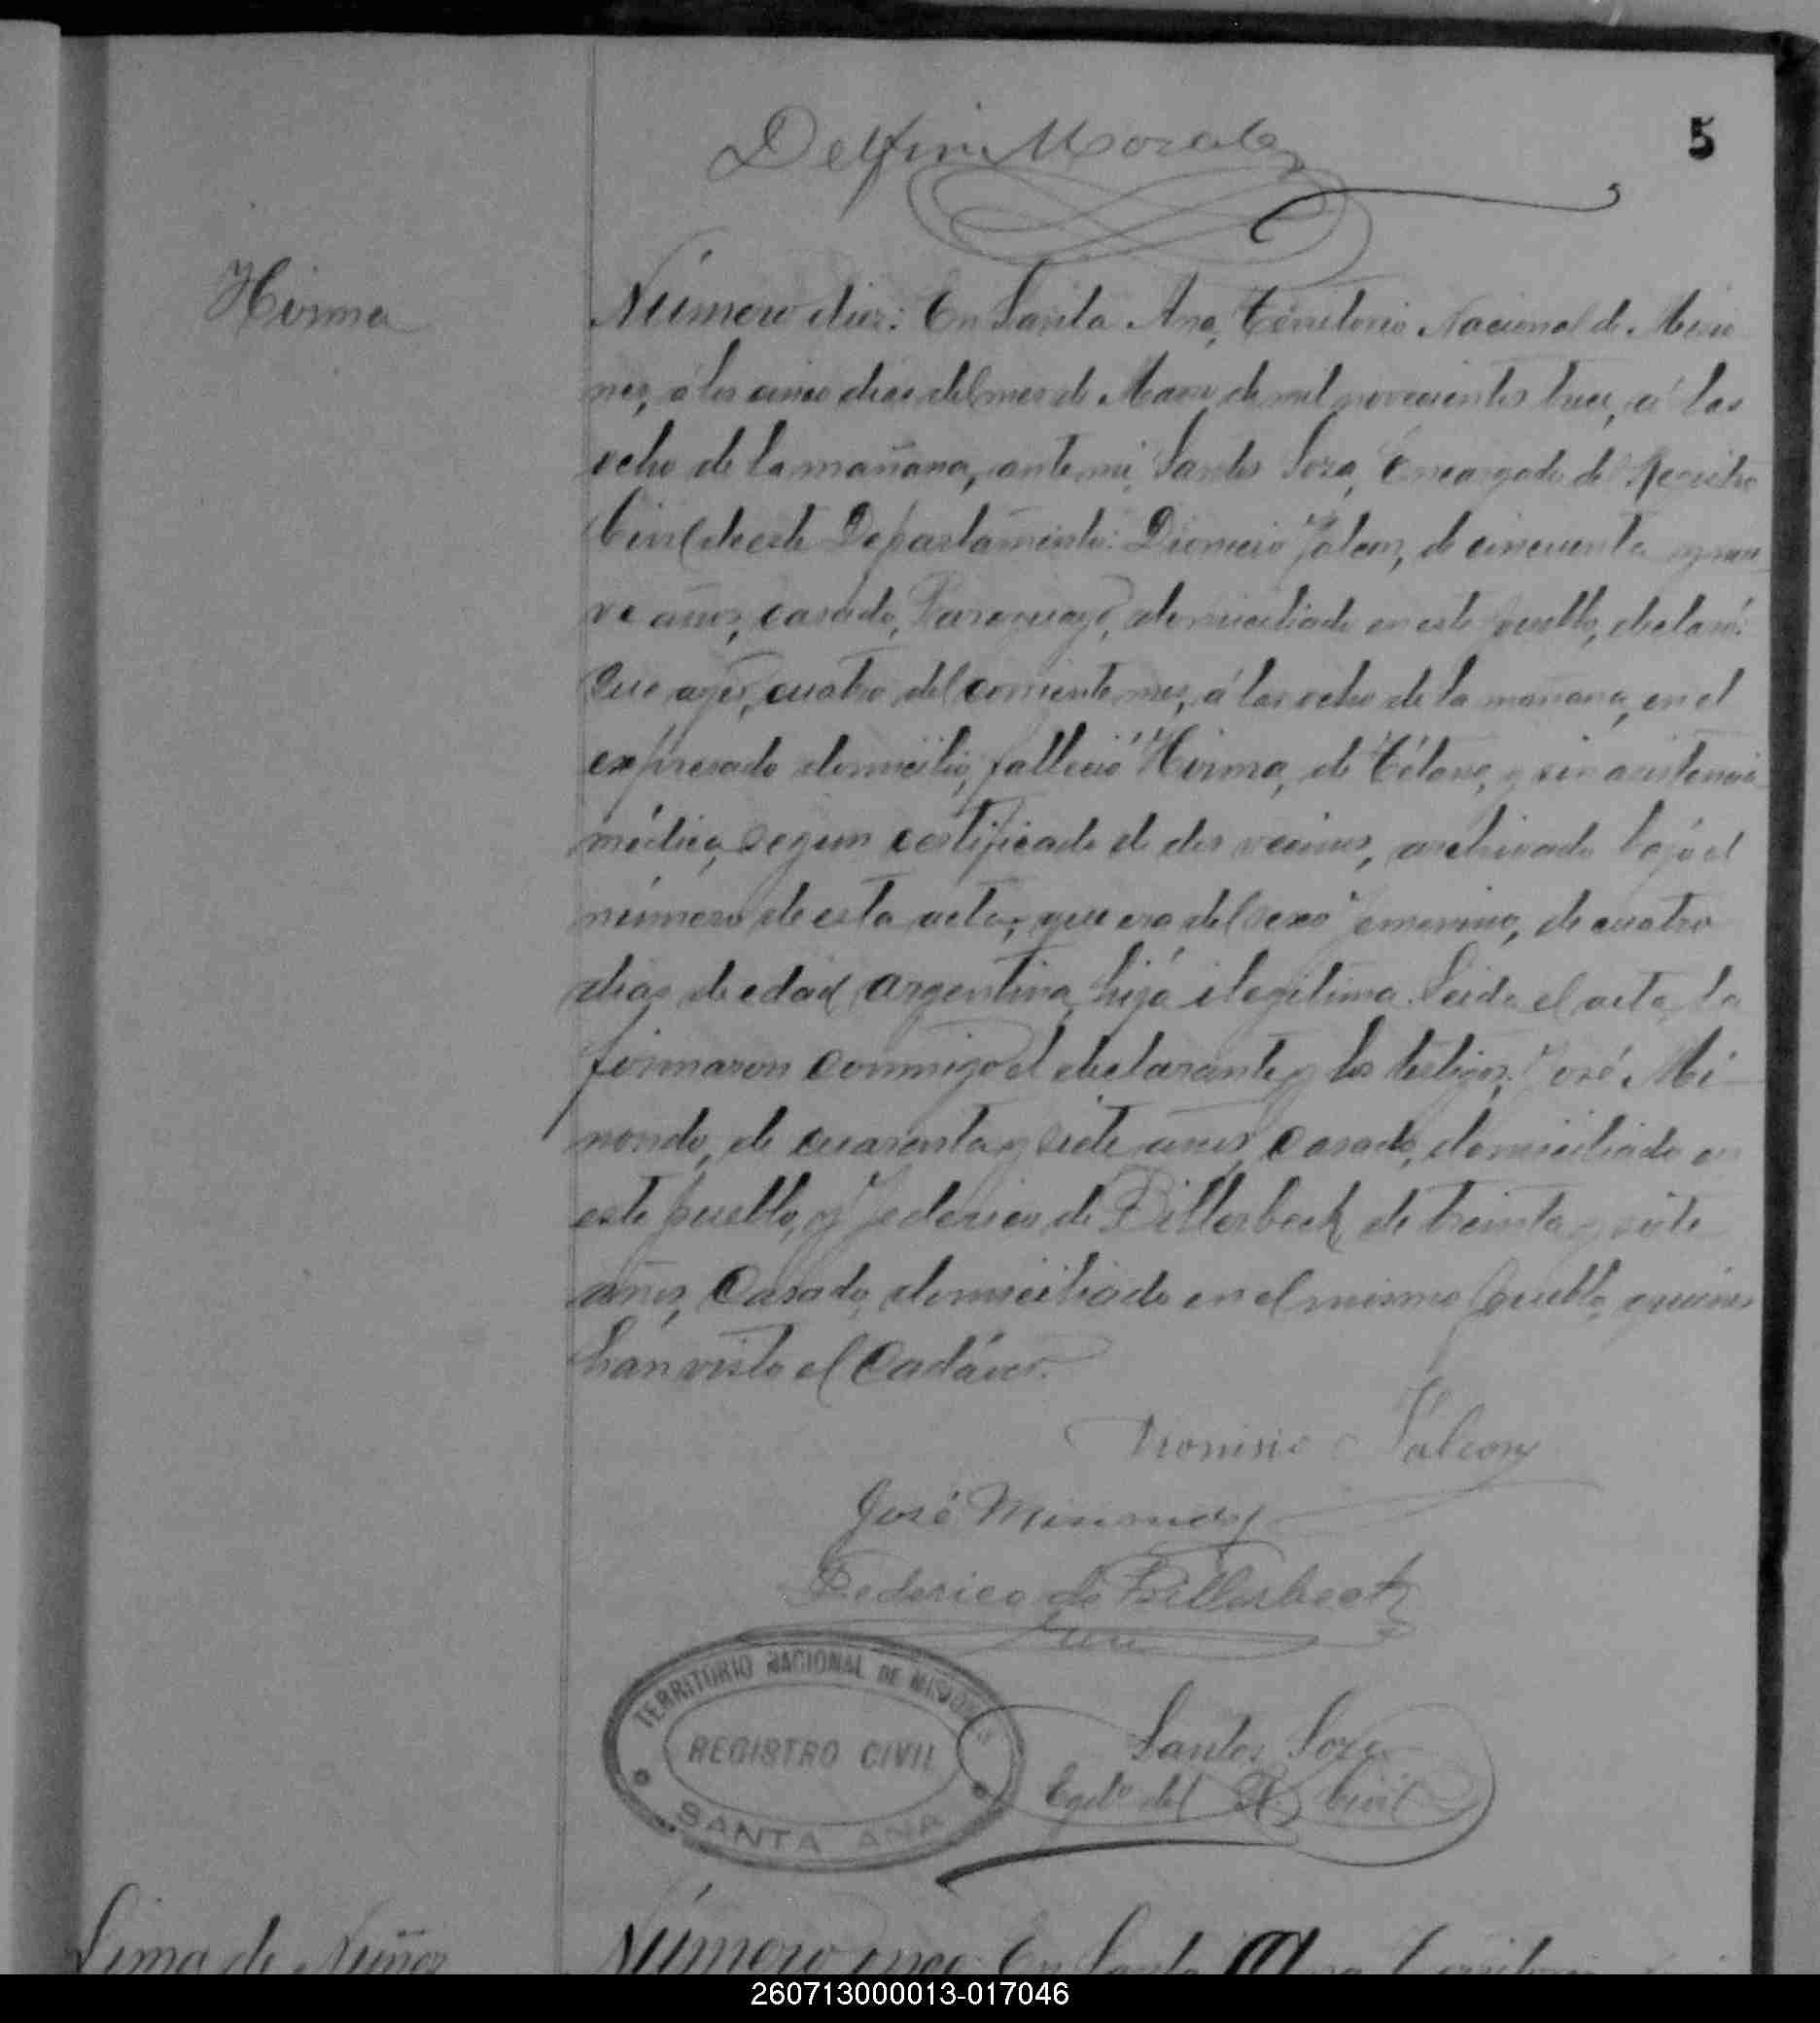 Delfin Morales
5
Hirma
Número diez: En Santa Ana, Territorio Nacional de Misio
nes, á los cinco dias del mes de Marzo de mil novecientos trece, á las
ocho de la mañana, ante mi, Santos Soza, Encargado del Registro
Civil de este Departamento: Dionicio Falcon, de cincuenta y nue
ve años, casado, Paraguayo, domiciliado en este pueblo, declaró:
Que ayer, cuatro del corriente mes, á las ocho de la mañana, en el
expresado domicilio, falleció Hirma, de Tétano, y sin asistencia
médica, segun certificado de dos vecinos, archivado bajo el
número de esta acta; que era del sexo femenino, de cuatro
dias de edad, argentina, hija ilegitima. Leida el acta, la
firmaron conmigo el declarante y los testigos: José Mi-
nondo, de cuarenta y siete años, casado, domiciliado en
este pueblo, y Federico de Billerbeck, de treinta y siete
años, casado, domiciliado en el mismo pueblo, quienes
han visto el cadáver.
Dionisio Falcon
José Minondo
Federico de Billerbeck
TERRITORIO NACIONAL DE MISIONES
REGISTRO CIVIL
SANTA ANA
Santos Soza
Egdo del R. Civil
Lima de Nuñez
Número once: En Santa Ana, Territorio
260713000013-017046